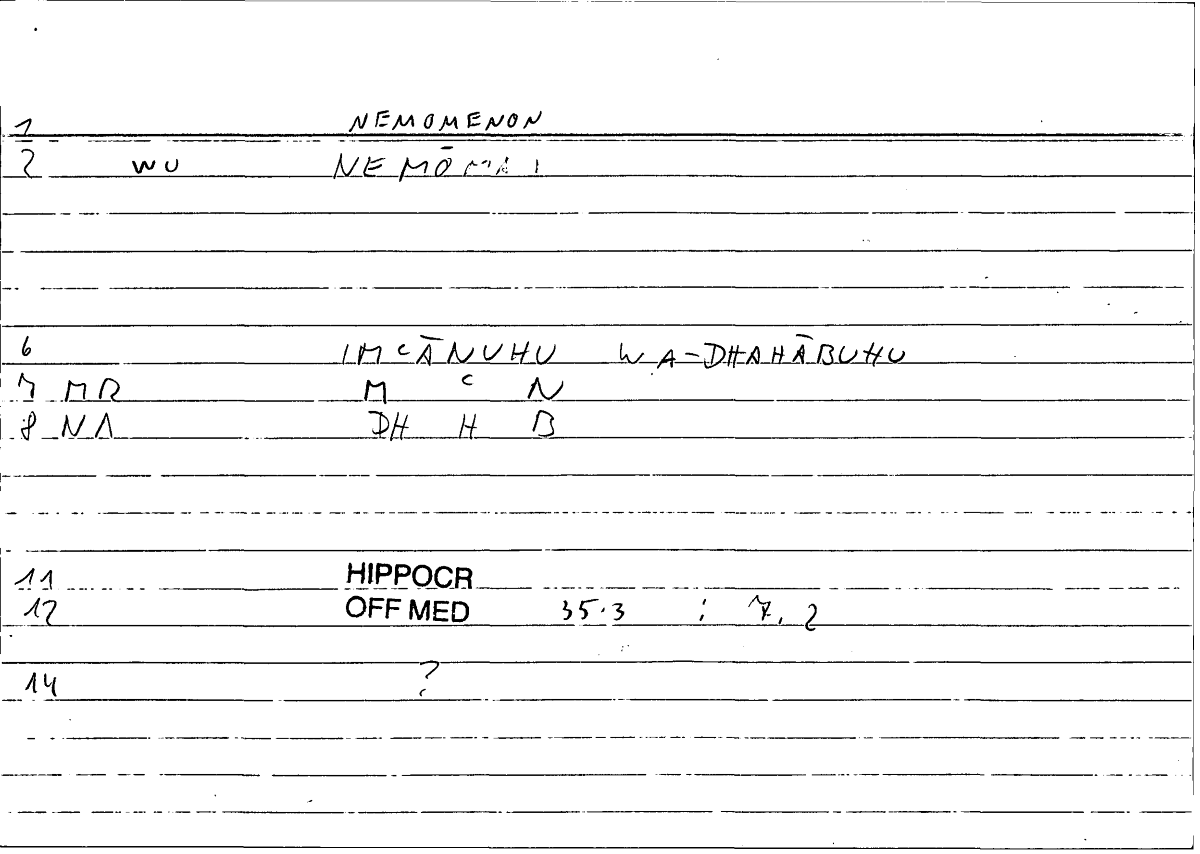 1 NEMOMENON
2 WU NEMŌMAI
6 IMCĀNUHU WA-DHAHĀBUHU
7 MR M C N
8 NA DH H B
11 HIPPOCR
12 OFF MED 35.3 ; 7, 2
14 ?